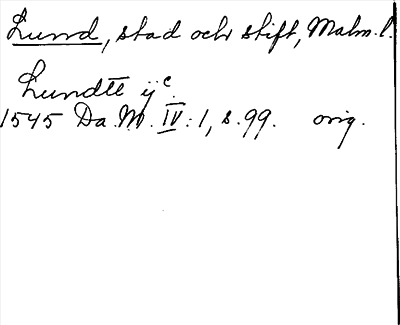 Lund, stad och stift, Malm. l.
Lundtt ijc.
1545 Da. M. IV: 1, s. 99. orig.